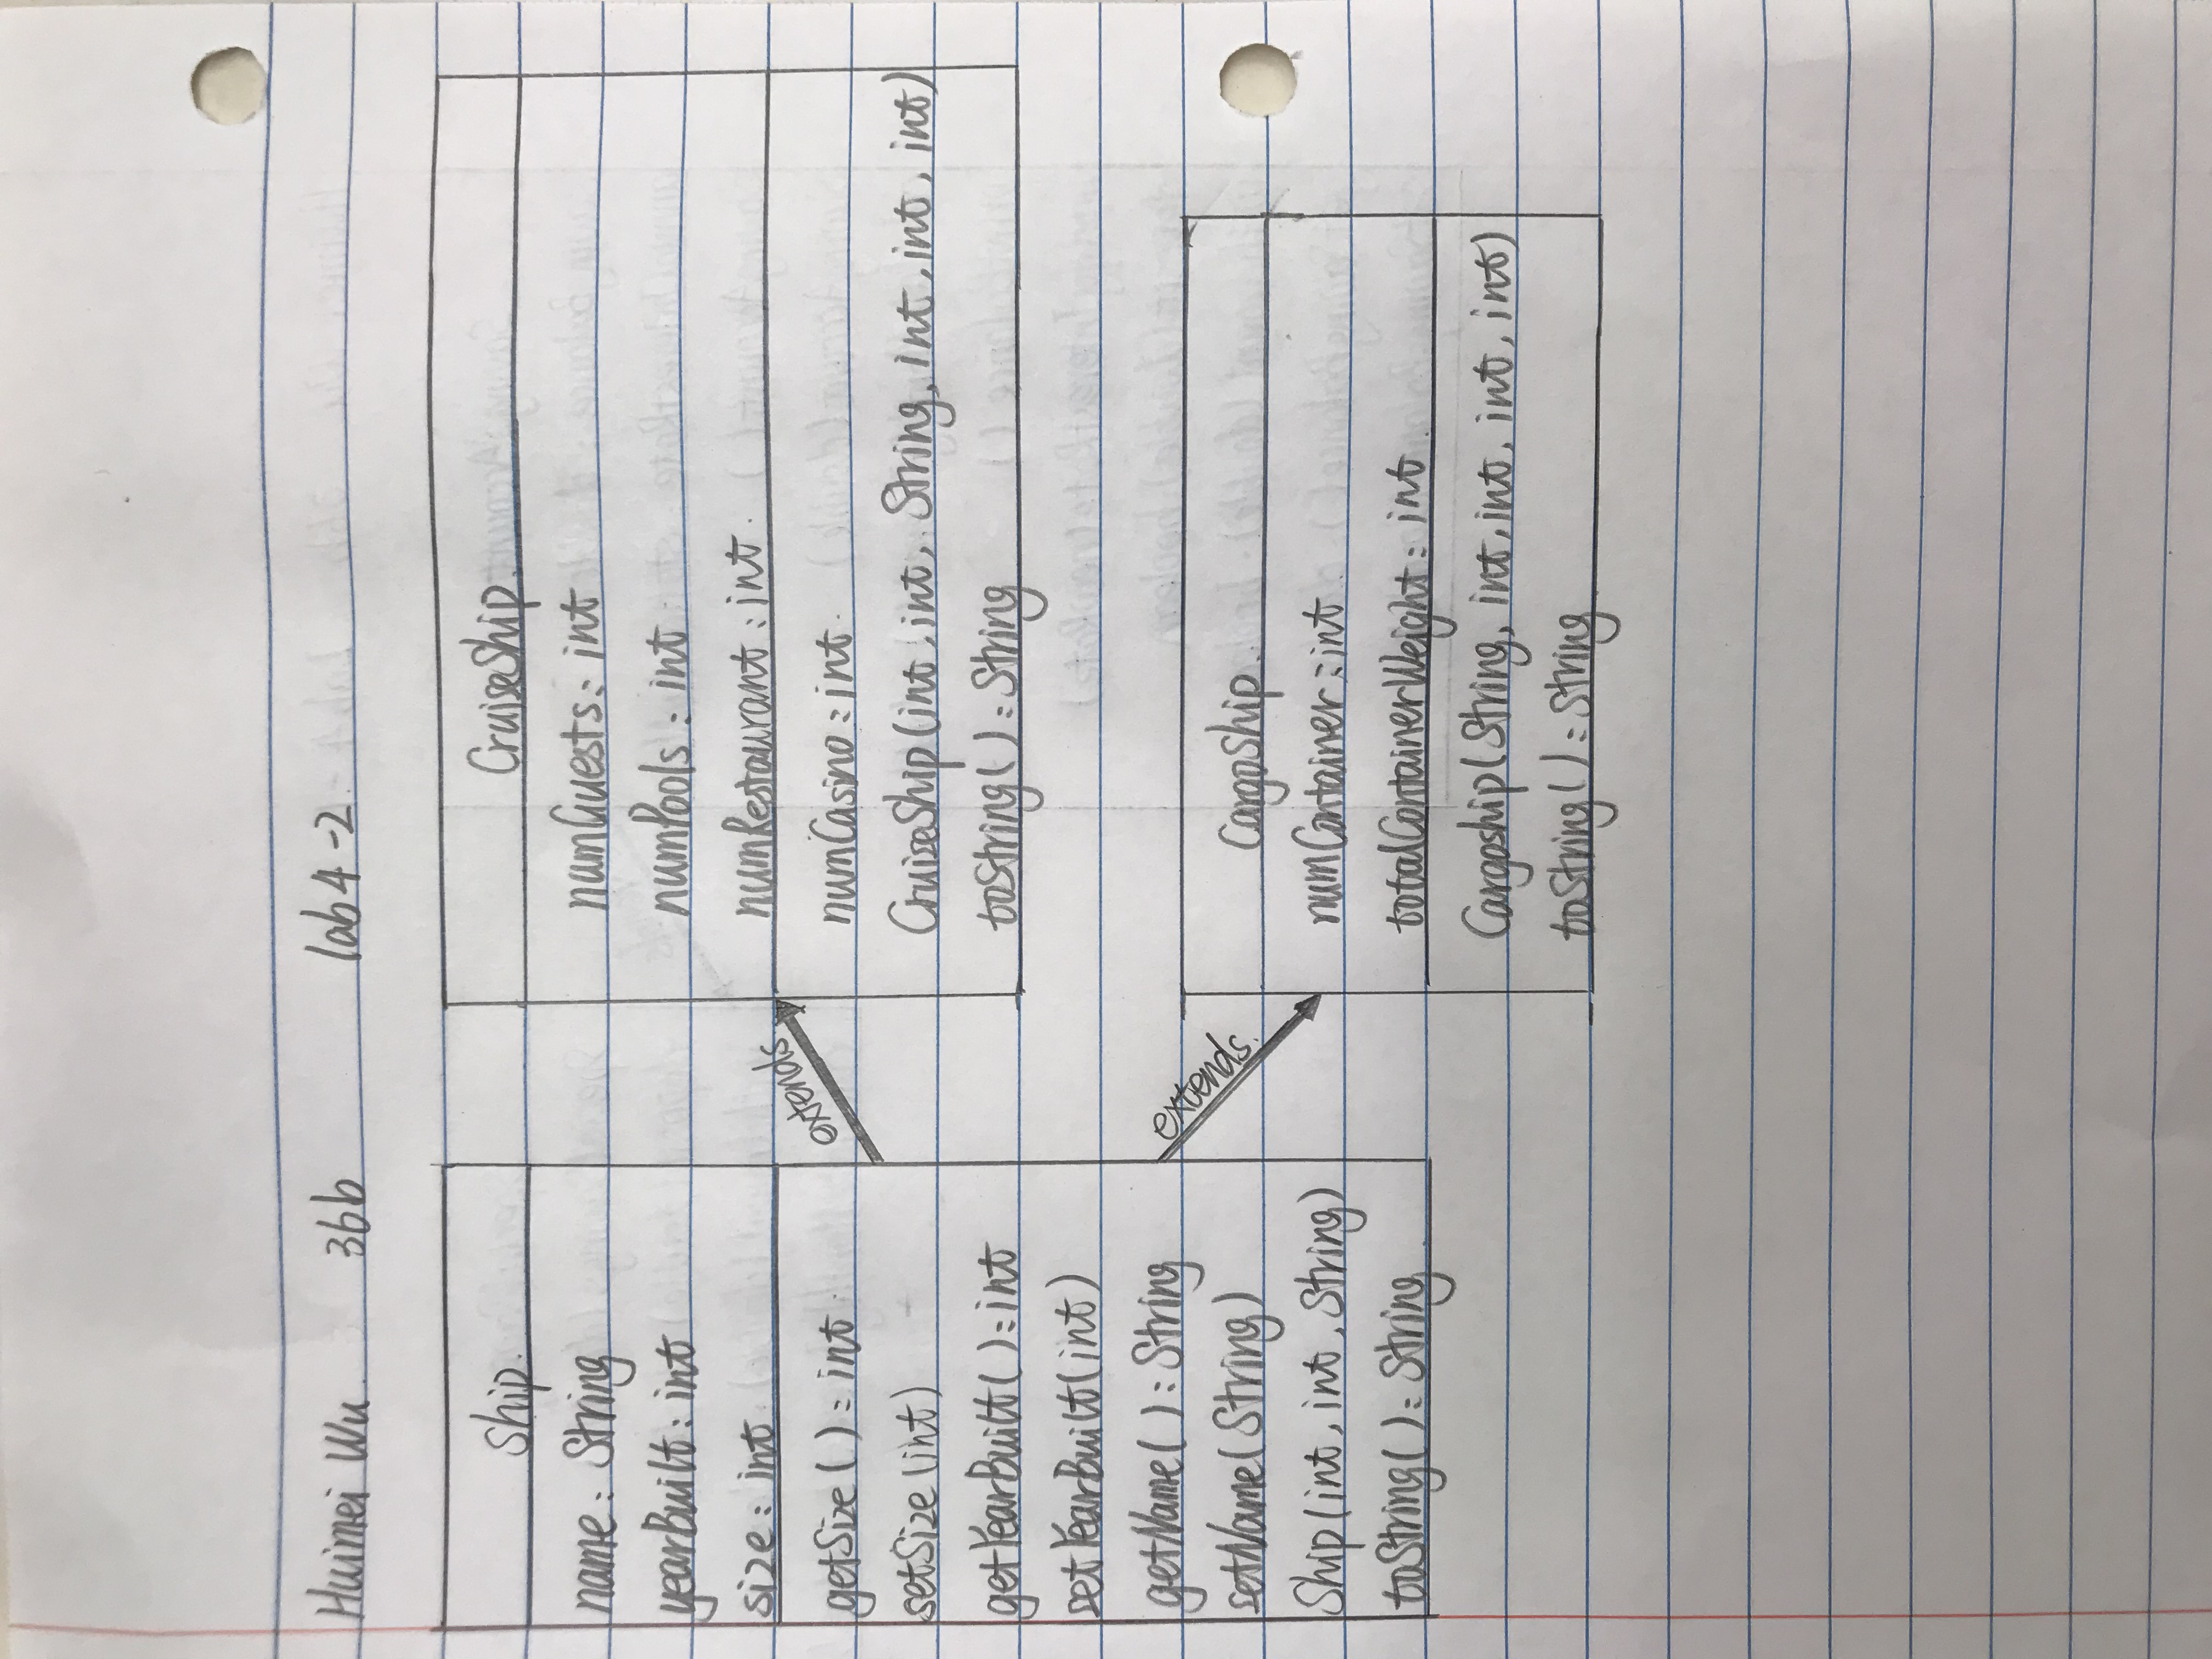 Huimei Wu. 36b lab4-2.
Ship.
name: String
yearBuilt: int
size: int
getSize(): int
setSize(int)
getYearBuilt(): int
setYearBuilt(int)
getName(): String
setName(String)
Ship(int, int, String)
toString(): String
extends
extends.
CruiseShip
numGuests: int
numPools: int
numRestaurant: int
numCasino: int
CruiseShip(int, int, String, int, int, int)
toString(): String
CargoShip
numContainer: int
totalContainerWeight: int
Cargoship(String, int, int, int, int)
toString(): String